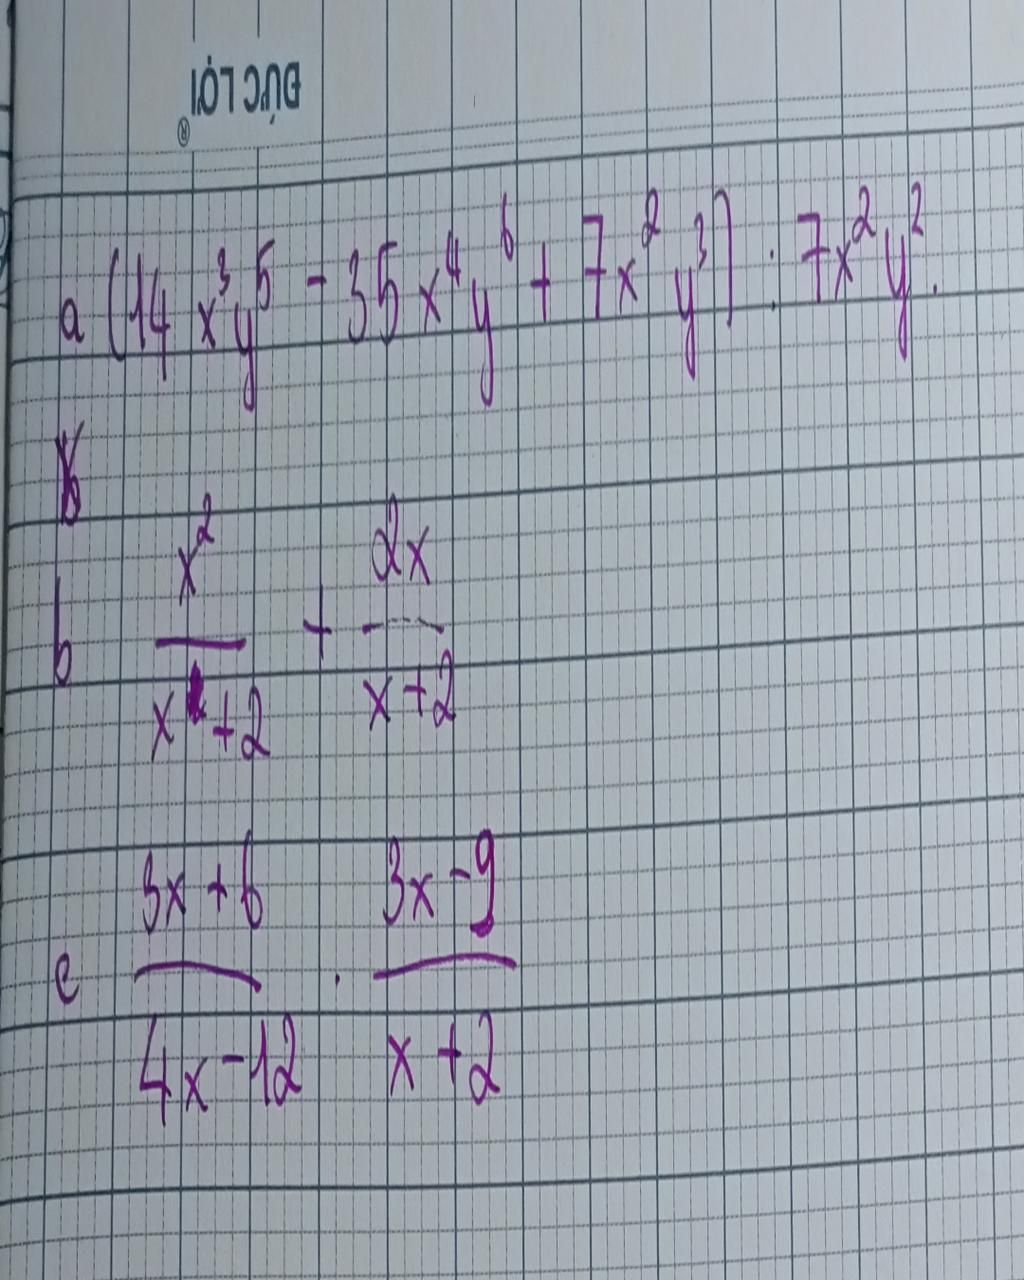 ĐỨC LỢI®
a (14x³y⁵ - 35x⁴y⁶ + 7x²y³) : 7x²y².
b x²/(x+2) + 2x/(x+2)
c (3x+6)/(4x-12) . (3x-9)/(x+2)